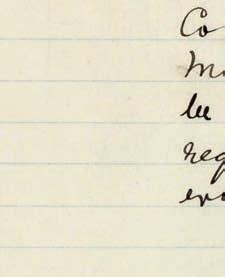 Co
Mo
be
req
evi